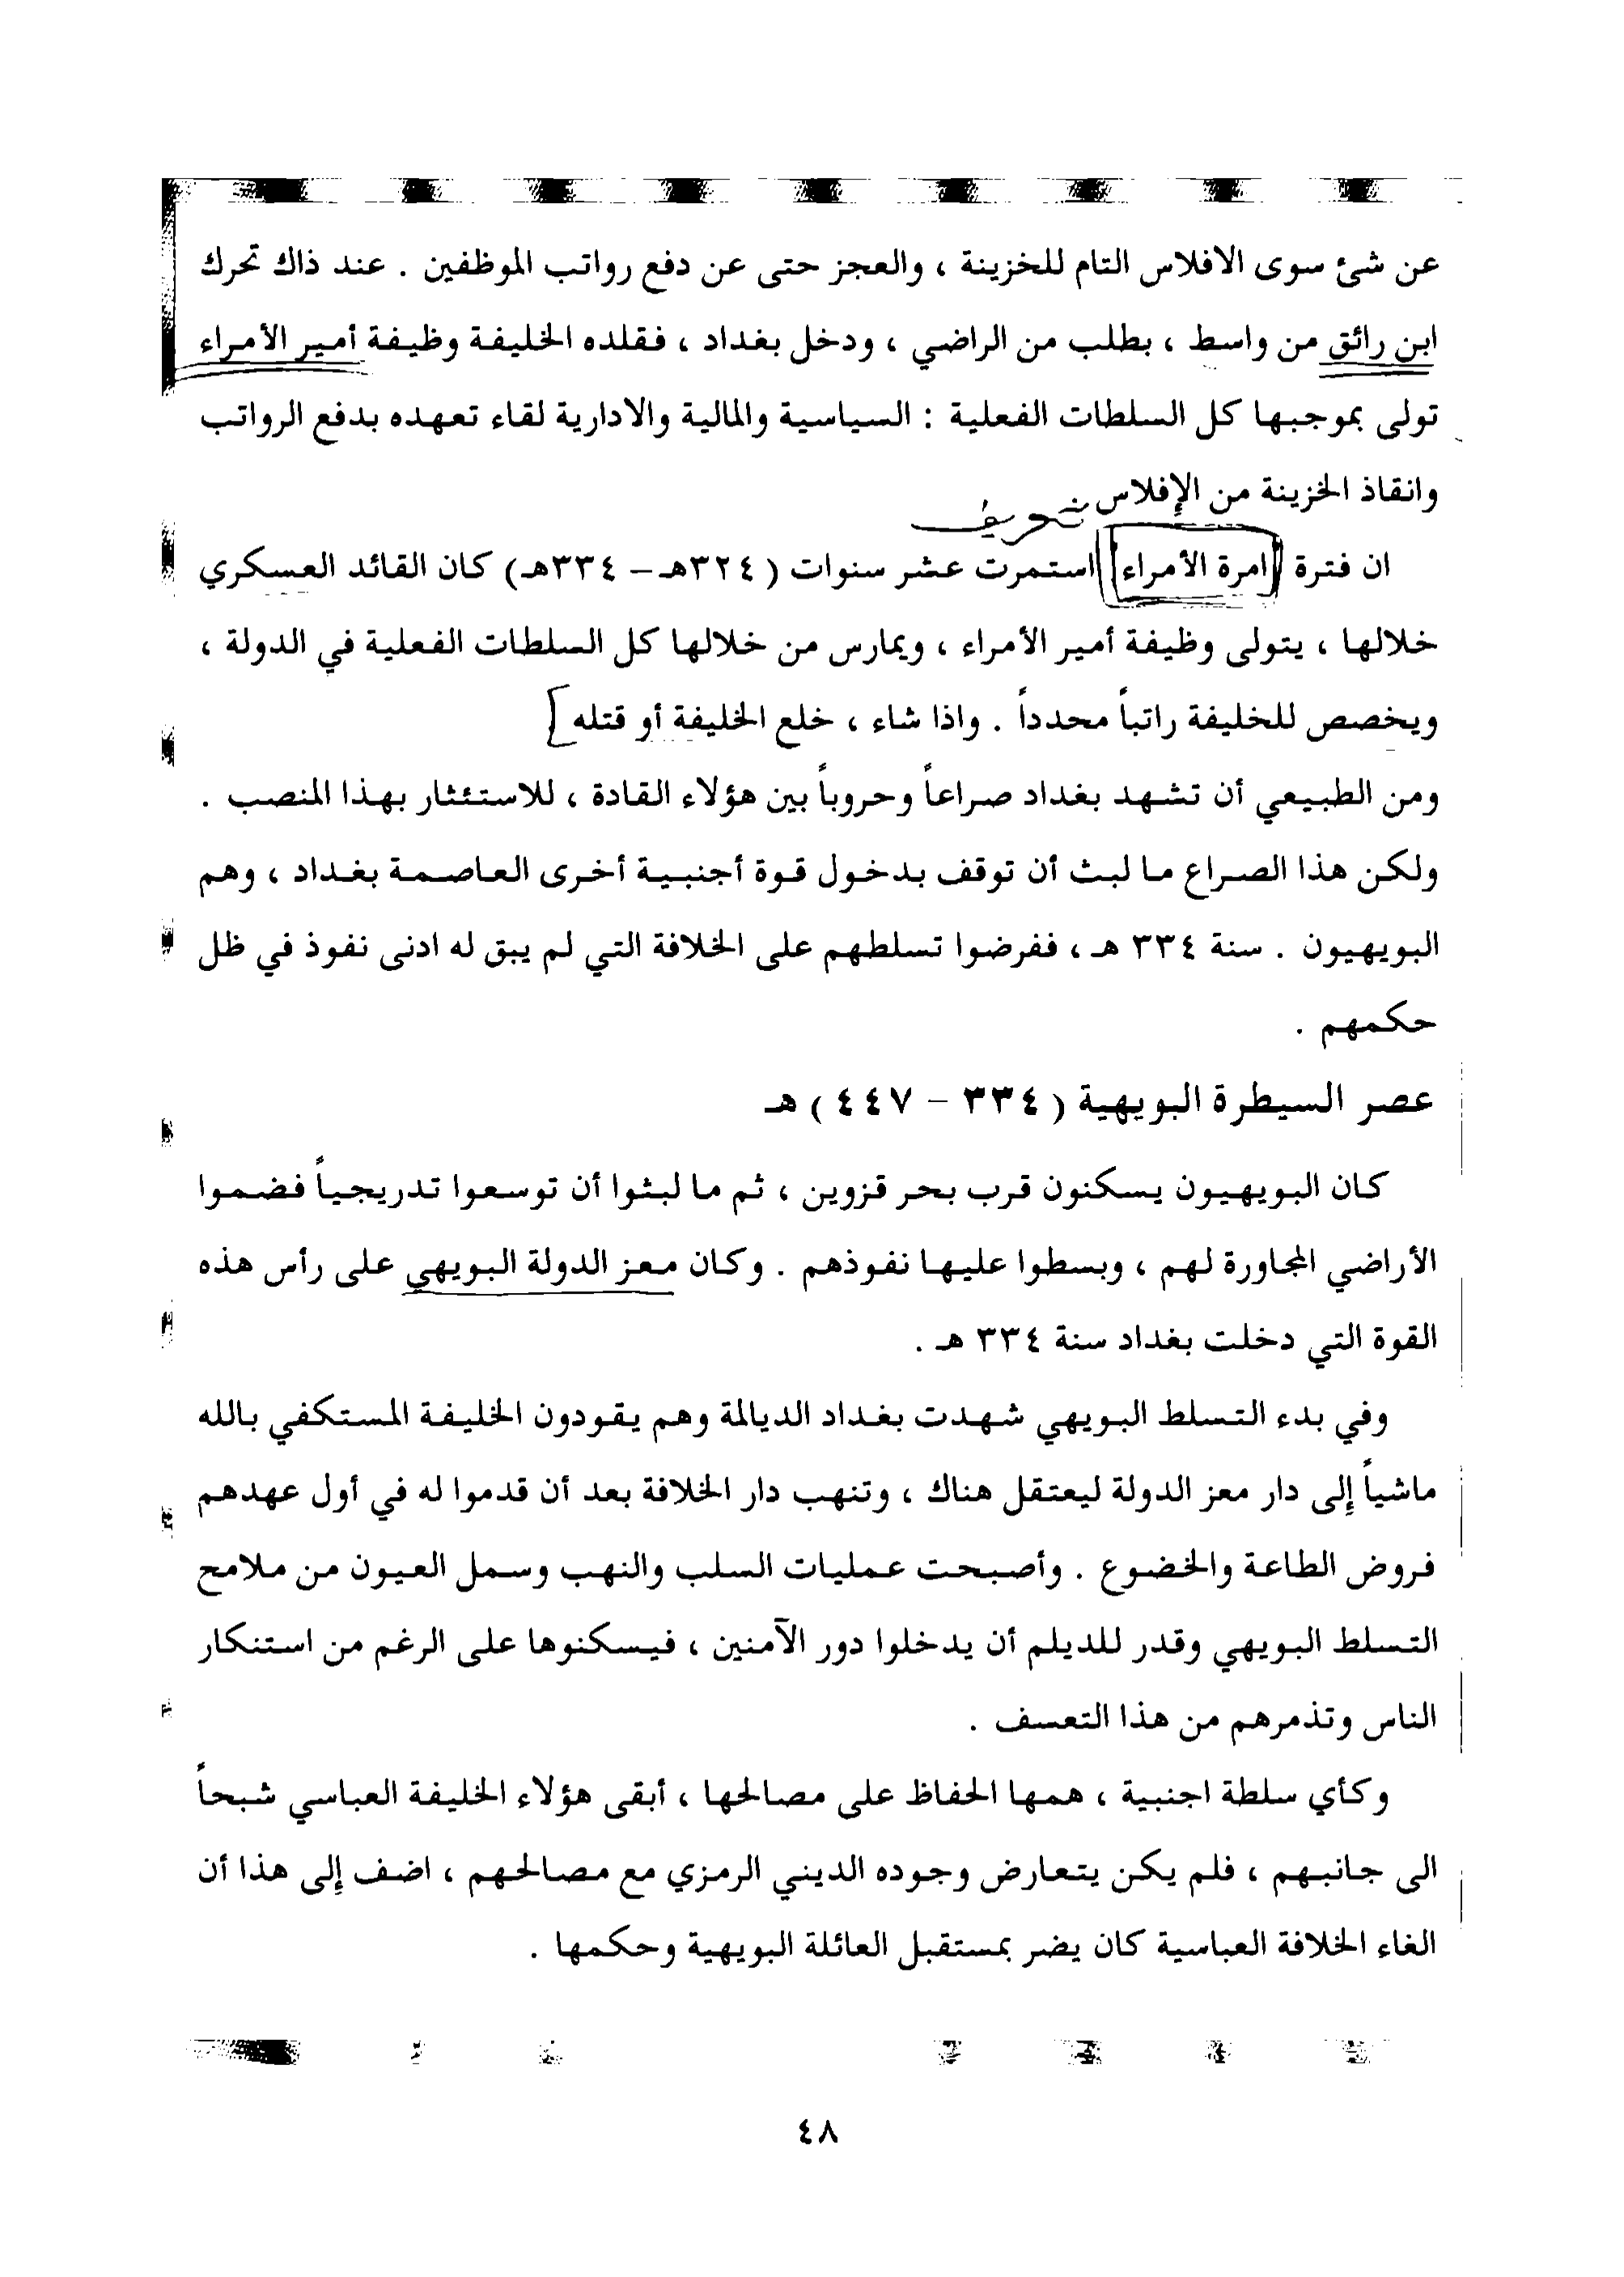 عن شئ سوى الافلاس التام للخزينة ، والعجز حتى عن دفع رواتب الموظفين . عند ذاك تحرك
ابن رائق من واسط ، بطلب من الراضي ، ودخل بغداد ، فقلده الخليفة وظيفة أمير الأمراء
تولى بموجبها كل السلطات الفعلية : السياسية والمالية والادارية لقاء تعهده بدفع الرواتب
وانقاذ الخزينة من الإفلاس
تعريف
ان فترة [امرة الأمراء] استمرت عشر سنوات ( ٣٢٤هـ – ٣٣٤هـ) كان القائد العسكري
خلالها ، يتولى وظيفة أمير الأمراء ، ويمارس من خلالها كل السلطات الفعلية في الدولة ،
ويخصص للخليفة راتباً محدداً . واذا شاء ، خلع الخليفة أو قتله ]
ومن الطبيعي أن تشهد بغداد صراعاً وحروباً بين هؤلاء القادة ، للاستئثار بهذا المنصب .
ولكن هذا الصراع ما لبث أن توقف بدخول قوة أجنبية أخرى العاصمة بغداد ، وهم
البويهيون . سنة ٣٣٤ هـ ، ففرضوا تسلطهم على الخلافة التي لم يبق له ادنى نفوذ في ظل
حكمهم .
عصر السيطرة البويهية ( ٣٣٤ – ٤٤٧ ) هـ
كان البويهيون يسكنون قرب بحر قزوين ، ثم ما لبثوا أن توسعوا تدريجياً فضموا
الأراضي المجاورة لهم ، وبسطوا عليها نفوذهم . وكان معز الدولة البويهي على رأس هذه
القوة التي دخلت بغداد سنة ٣٣٤ هـ .
وفي بدء التسلط البويهي شهدت بغداد الديالمة وهم يقودون الخليفة المستكفي بالله
ماشياً إلى دار معز الدولة ليعتقل هناك ، وتنهب دار الخلافة بعد أن قدموا له في أول عهدهم
فروض الطاعة والخضوع . وأصبحت عمليات السلب والنهب وسمل العيون من ملامح
التسلط البويهي وقدر للديلم أن يدخلوا دور الآمنين ، فيسكنوها على الرغم من استنكار
الناس وتذمرهم من هذا التعسف .
وكأي سلطة اجنبية ، همها الحفاظ على مصالحها ، أبقى هؤلاء الخليفة العباسي شبحاً
الى جانبهم ، فلم يكن يتعارض وجوده الديني الرمزي مع مصالحهم ، اضف إلى هذا أن
الغاء الخلافة العباسية كان يضر بمستقبل العائلة البويهية وحكمها .
٤٨